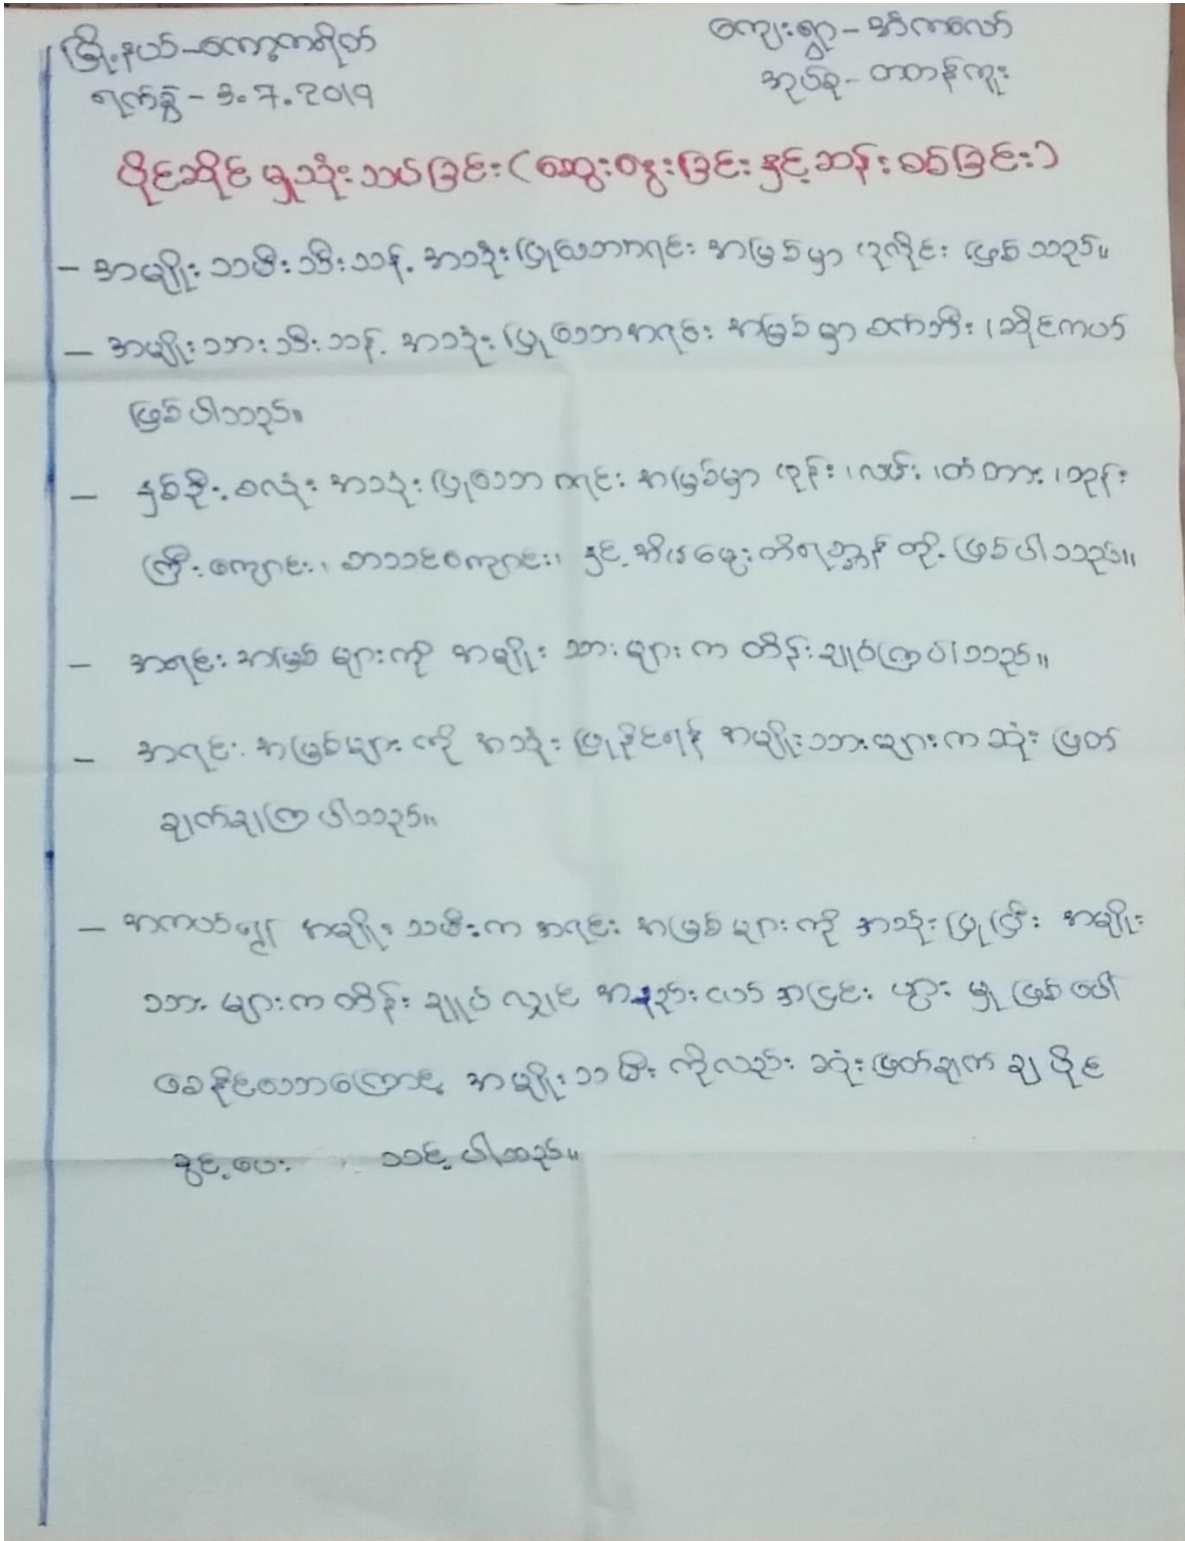 မြို့နယ်-ကော့ကရိတ် ကျေးရွာ-အံကလော်
ရက်စွဲ - 3.7.2019 အုပ်စု-တတန်ကူး
ပိုင်ဆိုင်မှုသုံးသပ်ခြင်း(ဆွေးနွေးခြင်းနှင့်ဆန်းစစ်ခြင်း)
- အမျိုးသမီးသီးသန့် အသုံးပြုသောအရင်းအမြစ်မှာ ဖြစ်သည်။
- အမျိုးသားသီးသန့် အသုံးပြုသောအရင်းအမြစ်မှာ စက်ဘီး၊ဆိုင်ကယ်
ဖြစ်ပါသည်။
- နှစ်ဦးစလုံး အသုံးပြုသော အရင်းအမြစ်မှာ ဖုန်း၊လမ်း၊တံတား၊ဘုန်း
ကြီးကျောင်း၊ စာသင်ကျောင်း၊ နှင့် အိမ်မွေးတိရစ္ဆာန် တို့ ဖြစ်ပါသည်။
- အရင်းအမြစ်များကို အမျိုးသားများက ထိန်းချုပ်ကြပါသည်။
- အရင်းအမြစ်များကို အသုံးပြုနိုင်ရန် အမျိုးသားများကဆုံးဖြတ်
ချက်ချကြပါသည်။
- အကယ်၍ အမျိုးသမီးက အရင်းအမြစ်များကို အသုံးပြုပြီး အမျိုး
သားများက ထိန်းချုပ်လျှင် အနည်းငယ် အငြင်းပွားမှု ဖြစ်ပေါ်
စေနိုင်သောကြောင့် အမျိုးသမီးကိုလည်း ဆုံးဖြတ်ချက်ချပိုင်
ခွင့်ပေး သင့်ပါသည်။